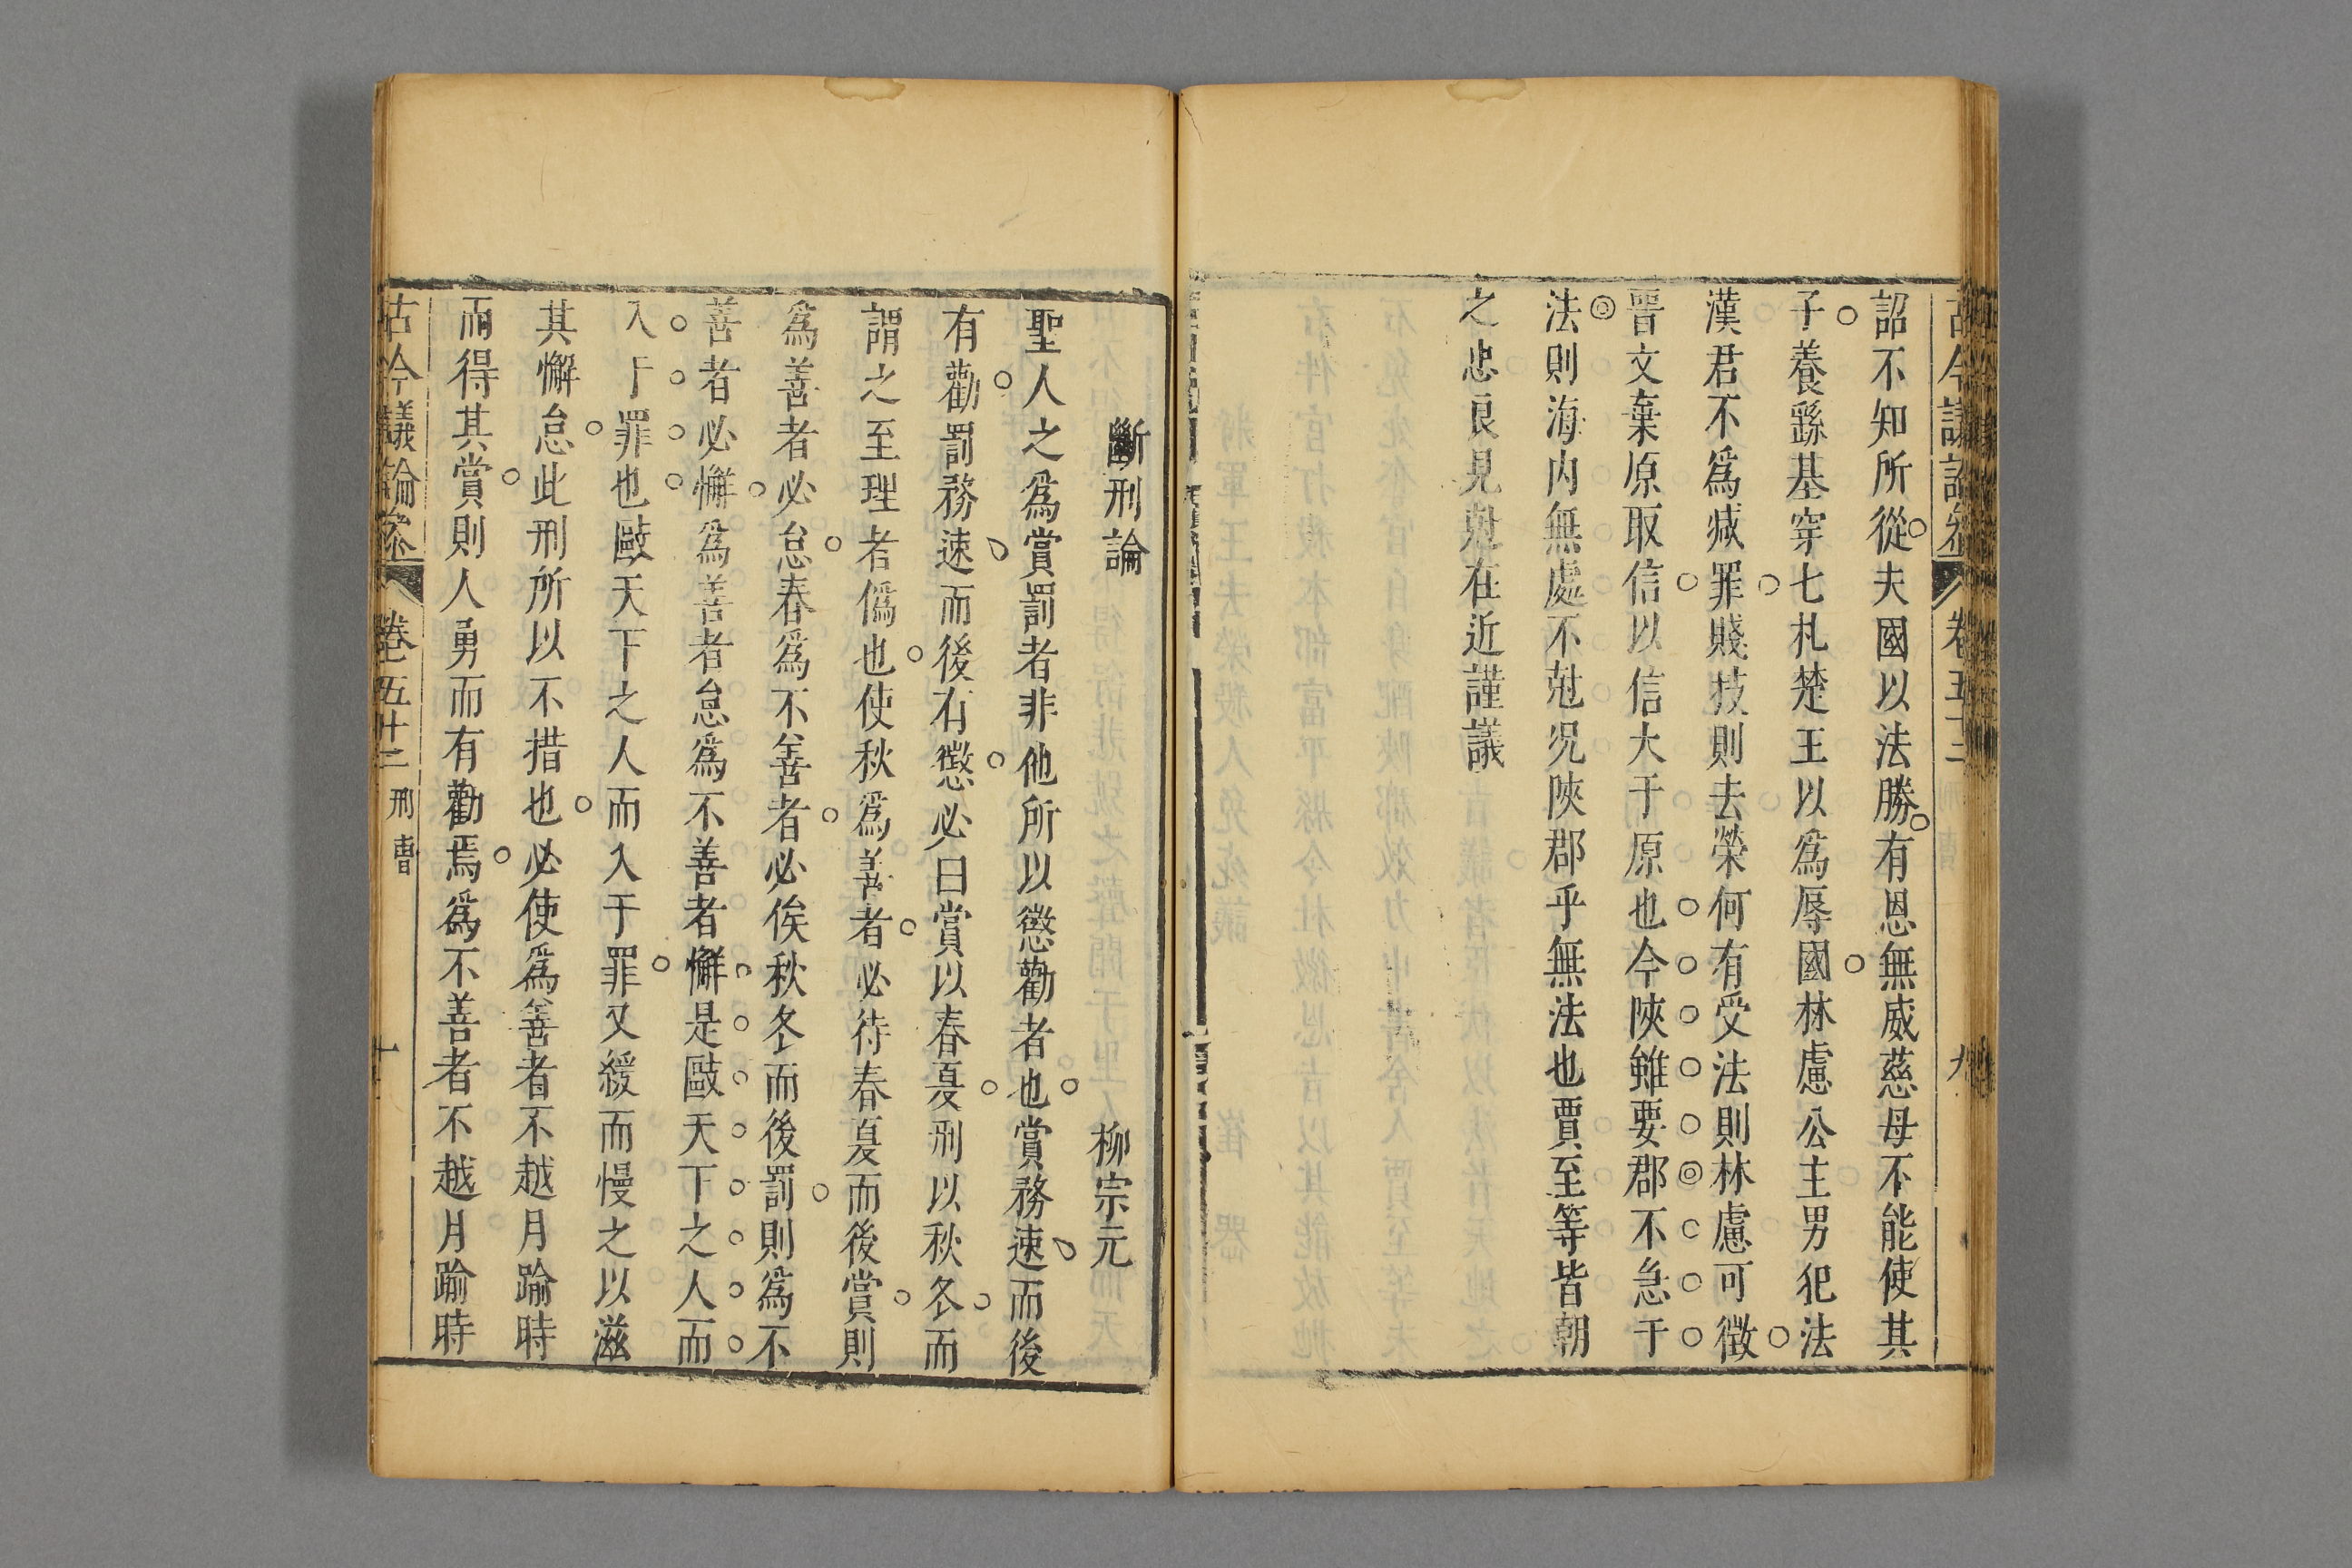 古今議論參 卷五十二 九
詔不知所從夫國以法勝有恩無威慈母不能使其
子養繇基穿七札楚王以爲辱國林慮公主男犯法
漢君不爲減罪賤技則去榮何有受法則林慮可徵
晉文棄原取信以信大于原也今陝雖要郡不急于
法則海内無處不尅況陝郡乎無法也賈至等皆朝
之忠良見尅在近謹議
斷刑論
柳宗元
聖人之爲賞罰者非他所以懲勸者也賞務速而後
有勸罰務速而後有懲必曰賞以春夏刑以秋冬而
謂之至理者僞也使秋爲善者必待春夏而後賞則
爲善者必怠春爲不善者必俟秋冬而後罰則爲不
善者必懈爲善者怠爲不善者懈是敺天下之人而
入于罪也敺天下之人而入于罪又緩而慢之以滋
其懈怠此刑所以不措也必使爲善者不越月踰時
而得其賞則人勇而有勸焉爲不善者不越月踰時
古今議論參 卷五十二 刑曹 十